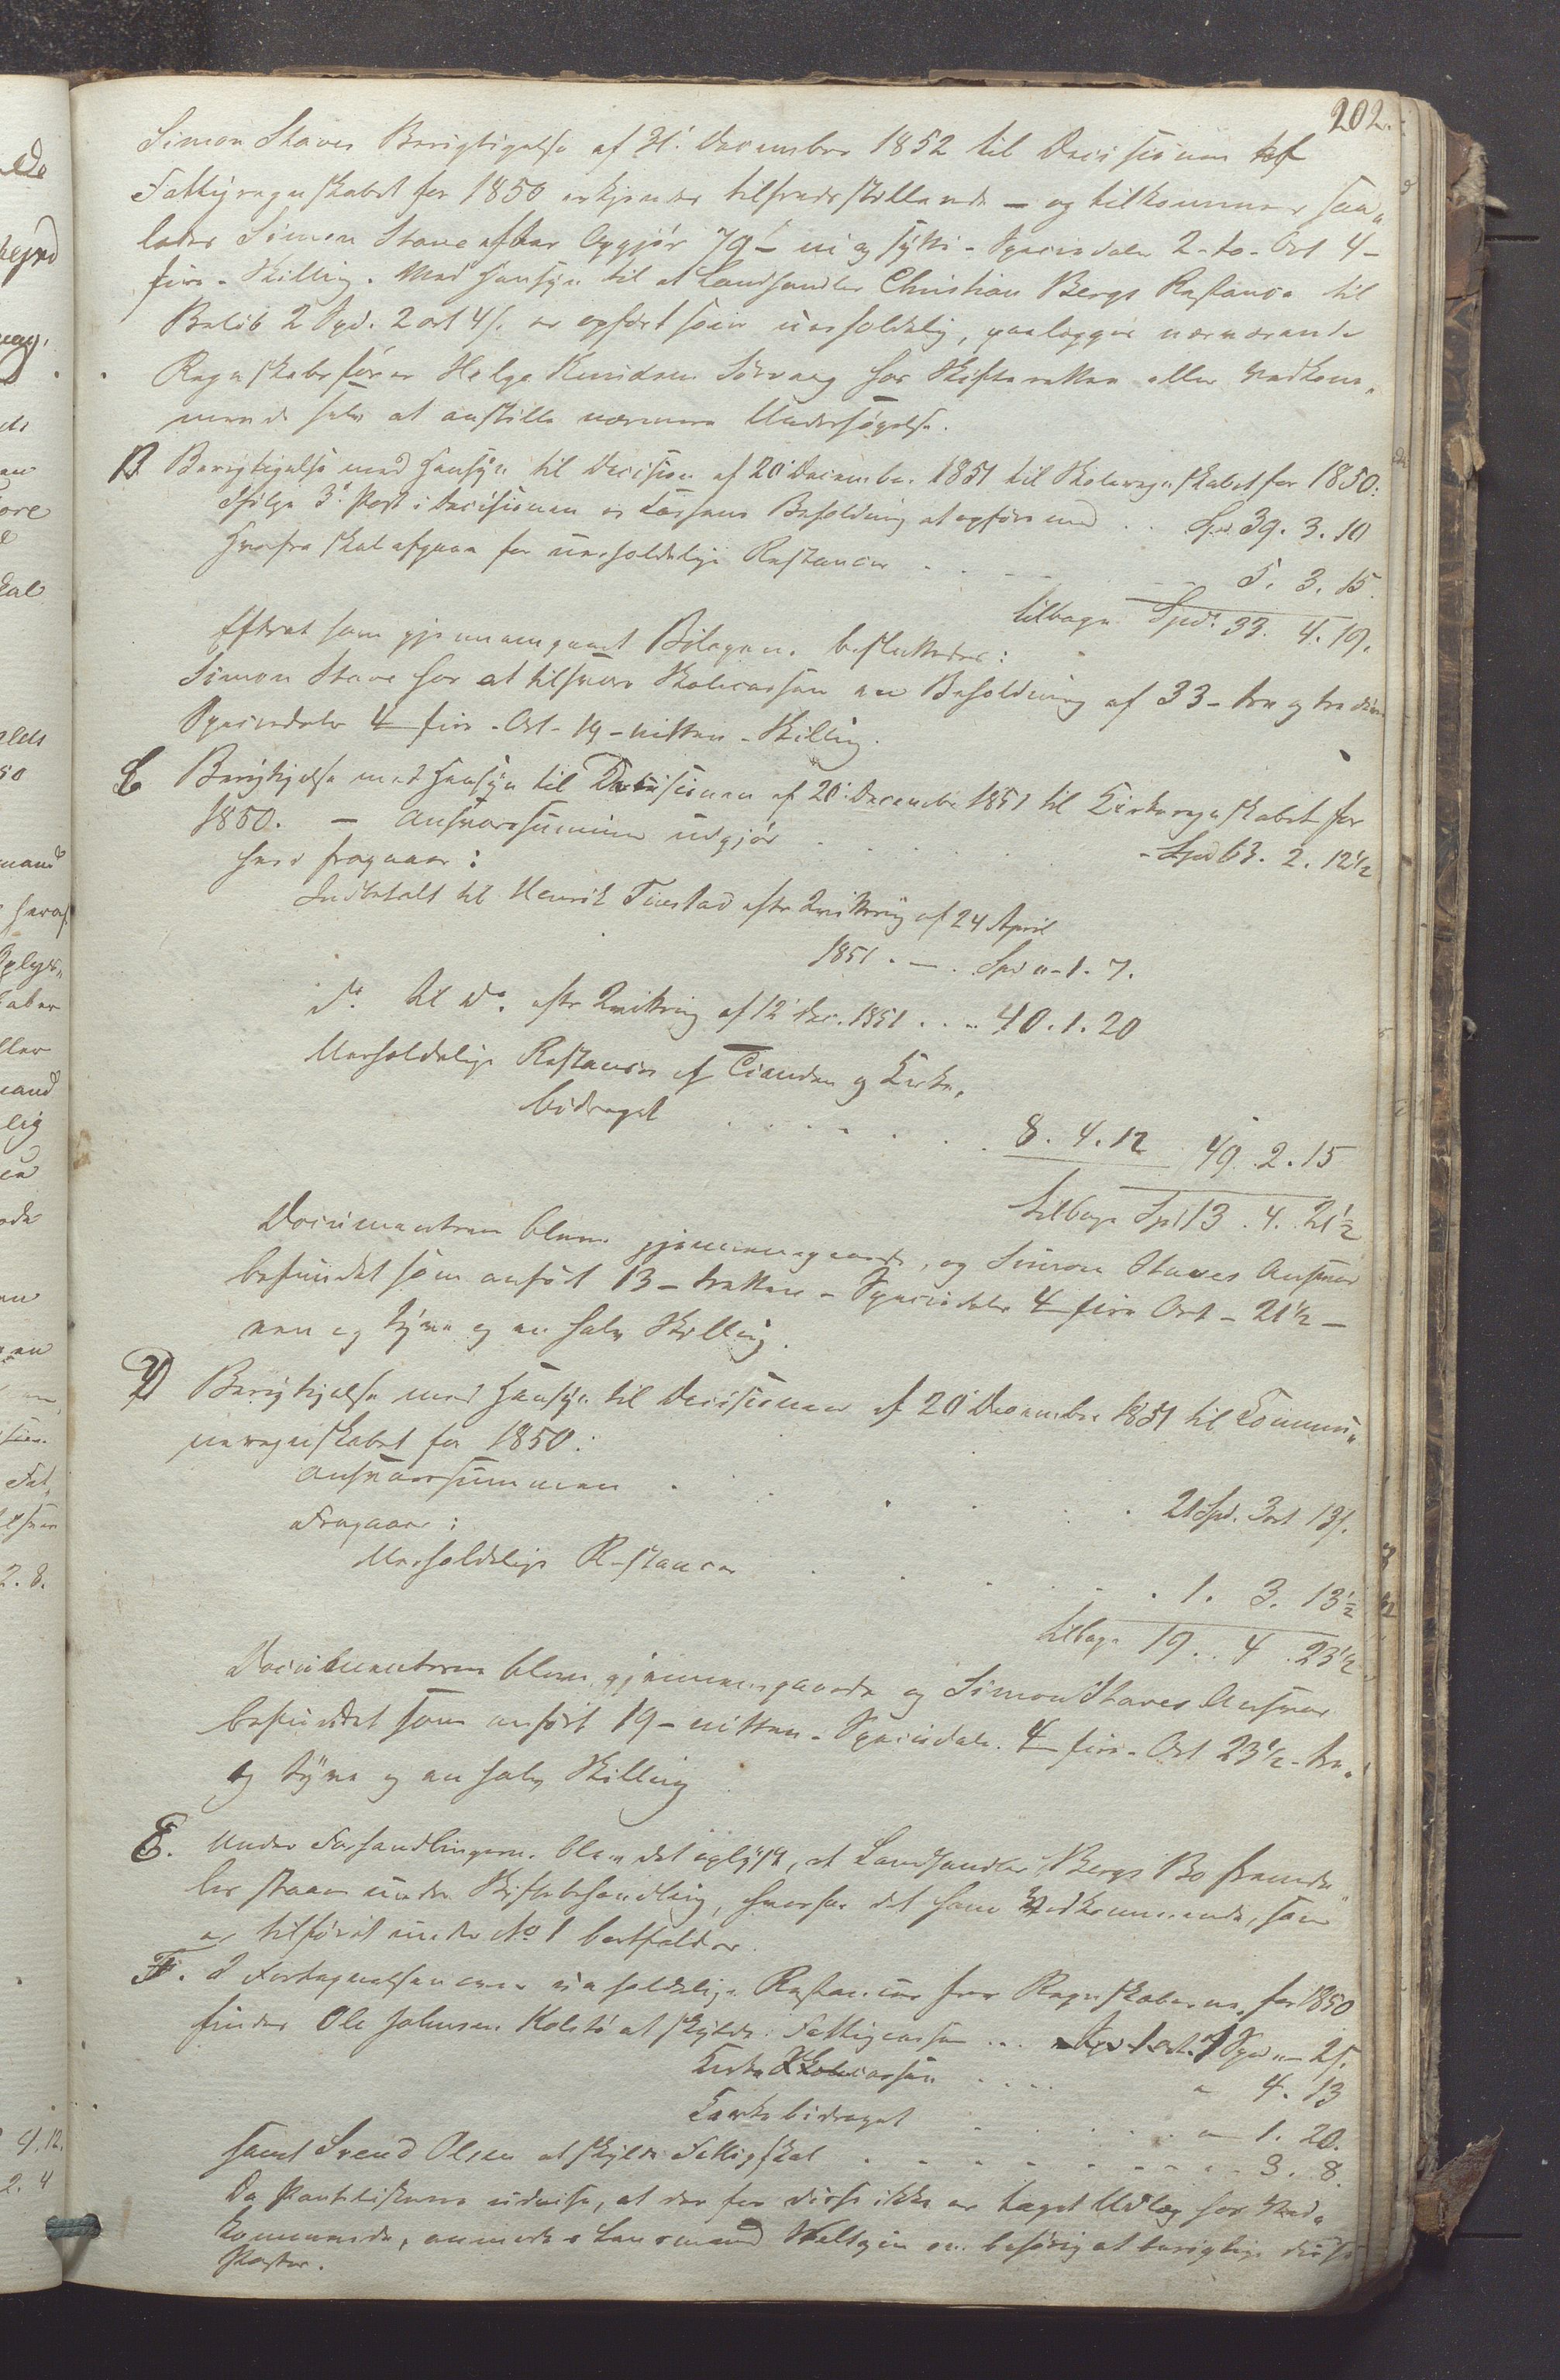 202.
Simon Staves Berigtigelse af 31' December 1852 til Decisionen af
Fattigregnskabet for 1850 erkjendes tilfredsstillende – og tilkommer saa„
ledes Simon Stave efter Opgjør 79 – ni og sytti – Speciedaler 2 – to – Ort 4 –
fire – Skilling. Med Hensyn til at Landhandler Christian Bergs Restance til
Beløb 2 Spd. 2 ort 4 s. er opført som uerholdelig, paalægges nærværende
Regnskabsfører Helge Knudsen Sörvaag hos Skifteretten eller Vedkom„
mende selv at anstille nærmere Undersøgelse.
B Berigtigelse med Hensyn til Decision af 20' December 1851 til Skoleregnskabet for 1850:
Ifölge 3' Post i Decisionen er Cassens Beholdning at opföre med . . Spd. 39. 3. 10
Herfra skal afgaae for uerholdelige Restancer . . . 5. 3. 15.
tilbage Spd. 33. 4. 19.
Efter at have gjennemgaaet Bilagene besluttedes:
Simon Stave har at tilsvare Skolecassen en Beholdning af 33 – tre og tredive
Speciedaler 4 fire – Ort – 19 – nitten – Skilling.
C Berigtigelse med Hensyn til Decisionen af 20' December 1851 til Kirkeregnskabet for
1850. – Ansvarssummen udgjör . . . Spd 63. 2. 12½
heri fragaaer:
Indbetalt til Henrik Finstad efter Qvittering af 24 April
1851 . – . Spd „ – 1. 7.
do. til do. efter Qvittering af 12' Dec. 1851 . . . 40. 1. 20
Uerholdelige Restancer af Tienden og Kirke„
bidraget . . . 8. 4. 12 49. 2. 15
tilbage Spd 13. 4. 21½
Documenterne bleve gjennemgaaede, og Simon Staves Ansvar
befundet som anfört 13 – tretten – Speciedaler 4 fire Ort – 21½ –
een og tyve og en halv Skilling.
D Berigtigelse med Hensyn til Decisionen af 20' December 1851 til Commu„
neregnskabet for 1850:
Ansvarssummen . . . 21 Spd. 3 ort 13 s.
Fragaaer:
Uerholdelige Restancer . . . 1. 3. 13½
tilbage 19. 4. 23½
Documenterne bleve gjennemgaaede og Simon Staves Ansvar
befundet som anfört 19 – nitten – Speciedaler 4 fire – Ort 23½ – tre„
og tyve og en halv Skilling
E. Under Forhandlingerne blev det oplyst, at Landhandler Bergs Bo fremde„
les staaer under Skiftebehandling, hvorfor det hans Vedkommende, som
er tilfört under No 1 bortfalder.
F. I Fortegnelsen over uerholdelige Restancer for Regnskaberne for 1850
findes Ole Johnsen Kolstö at skylde: Fattigcassen . . . Spd „ – 2 s.
Skolecassen . . . „ 4. 13
Kirkebidraget . . . „ 1. 20.
samt Svend Olsen at skylde Fattigskat . . . 3. 8.
Da Pantelisterne udvise, at der for disse ikke er taget Udlæg hos Ved„
kommende, anmodes Lensmand om behörig at berigtige disse
Poster.